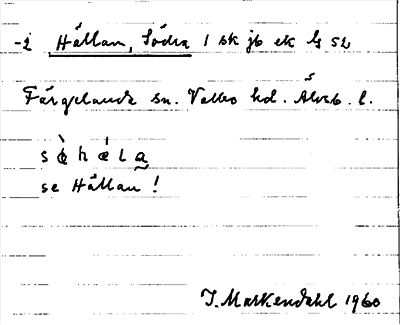 -2 Hållan, Södra 1 sk jb ek bl 52
Färgelanda sn. Valbo hd. Älvsb. l.
se Hållan!
J. Markendahl 1960